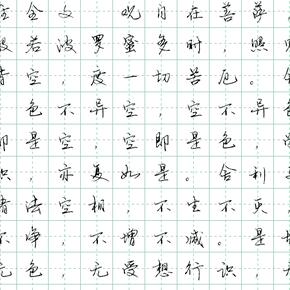 全文 观自在菩萨,
般若波罗蜜多时,照
皆空,度一切苦厄。
色不异空,空不异
即是空,空即是色,
识,亦复如是。舍利
诸法空相,不生不灭,
不净,不增不减。是
无色,无受想行识,